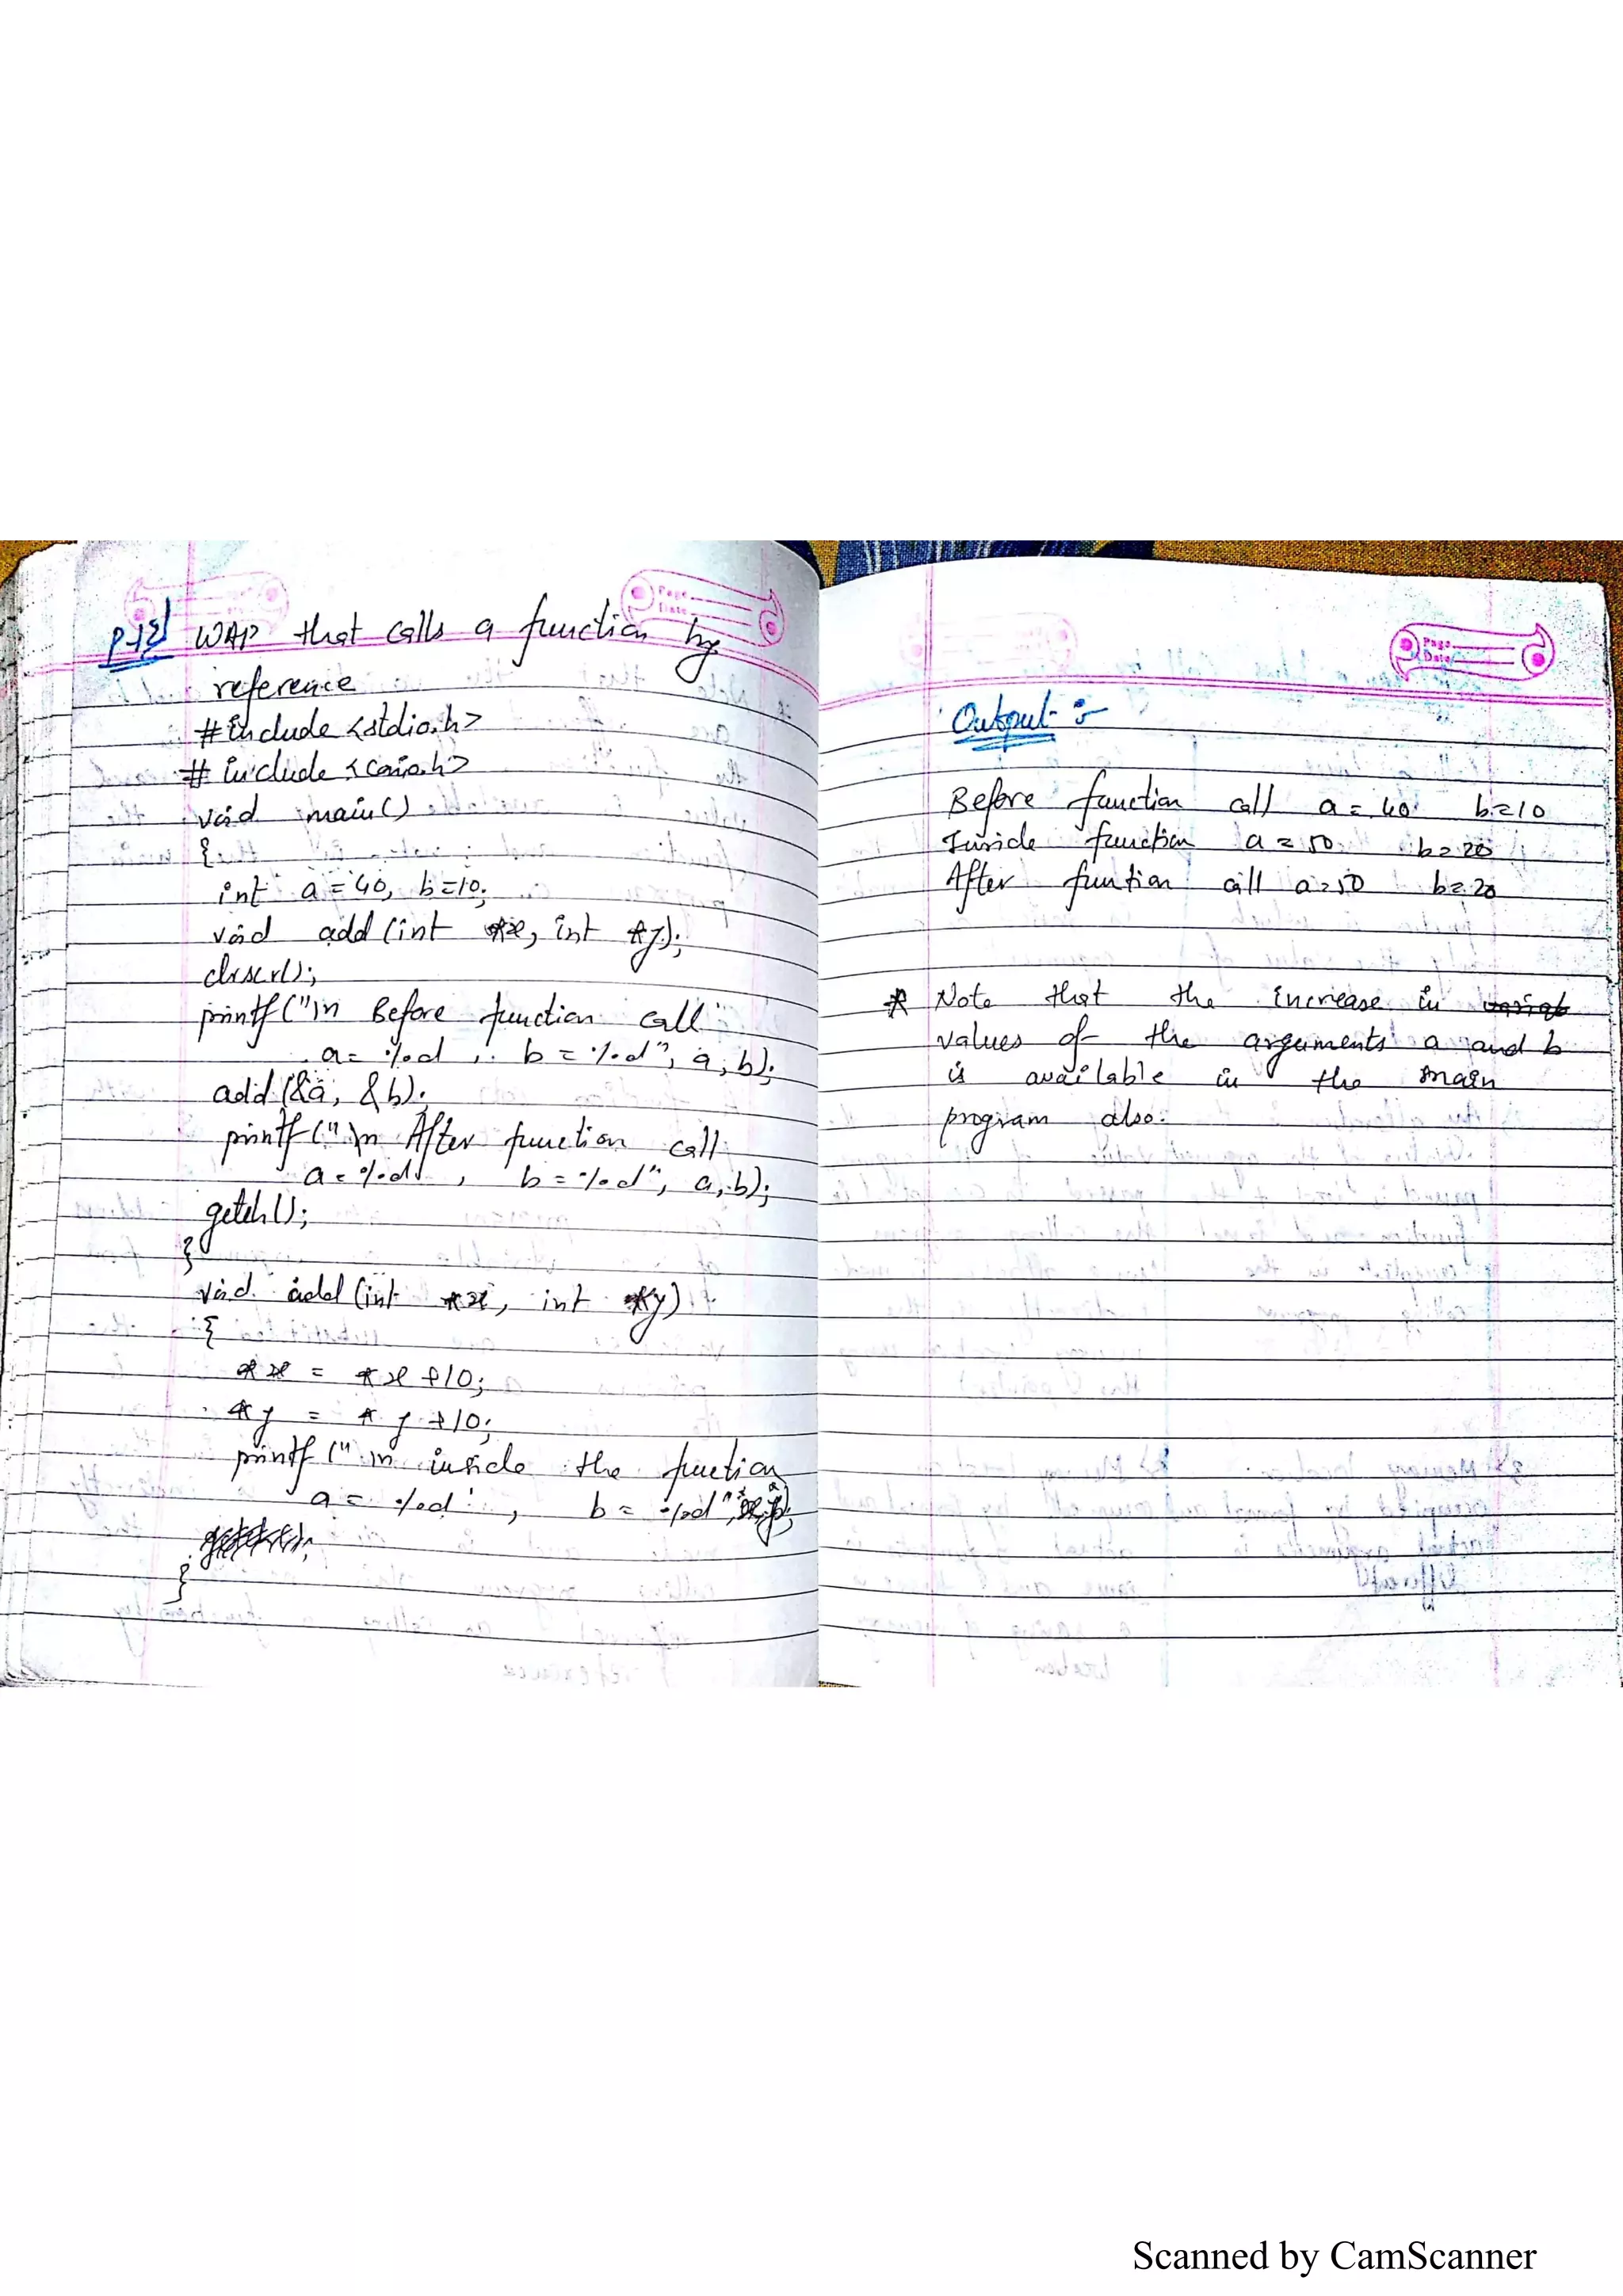 P-12 WAP that calls a function by
reference
#include <stdio.h>
#include <conio.h>
void main()
{
int a=40, b=10;
void add(int *x, int *y);
clrscr();
printf("\n Before function call
a= %d , b = %d", a, b);
add(&a, &b);
printf("\n After function call
a=%d , b=%d", a, b);
getch();
}
void add(int *x, int *y)
{
*x = *x +10;
*y = *y +10;
printf("\n inside the fuction
a = %d , b = %d", *x, *y);
}
Page
Date
Output :-
Before function call a = 40 b=10
Inside function a = 50 b=20
After funtion call a=50 b=20
* Note that the increase in
values of the arguments a and b
is available in the main
program also.
Scanned by CamScanner